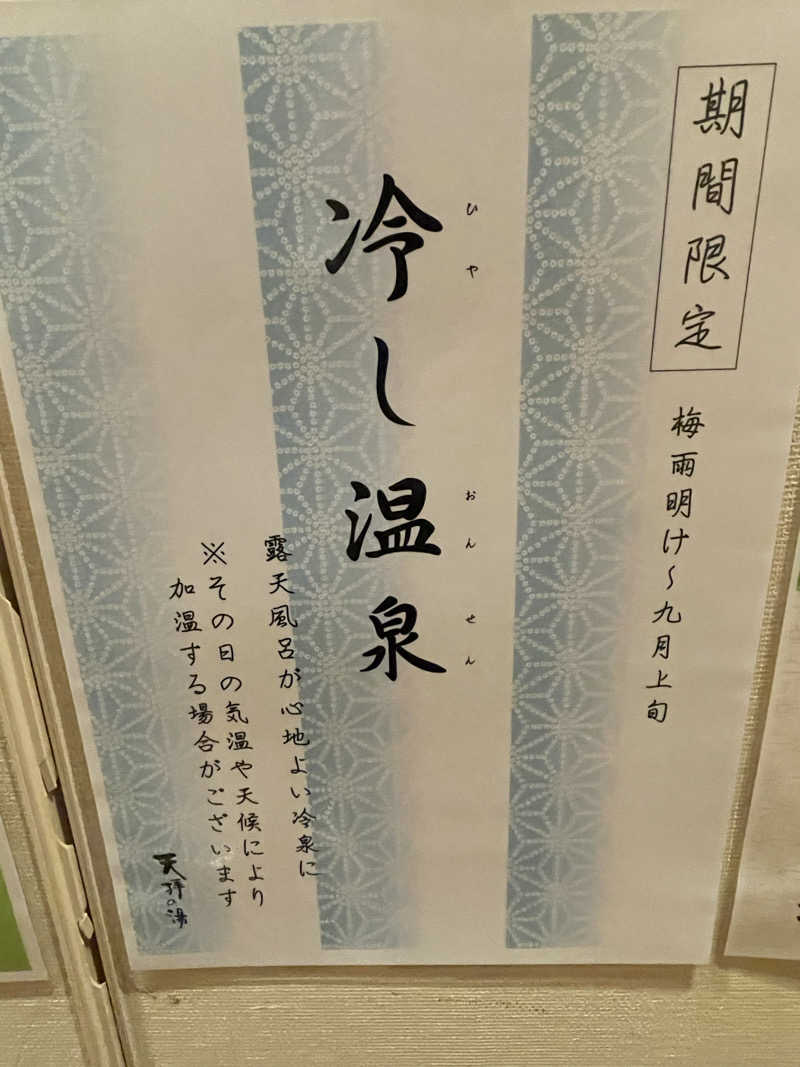 期間限定
梅雨明け〜九月上旬
ひや
おんせん
冷し温泉
露天風呂が心地よい冷泉に
※その日の気温や天候により
加温する場合がございます
天拝の湯